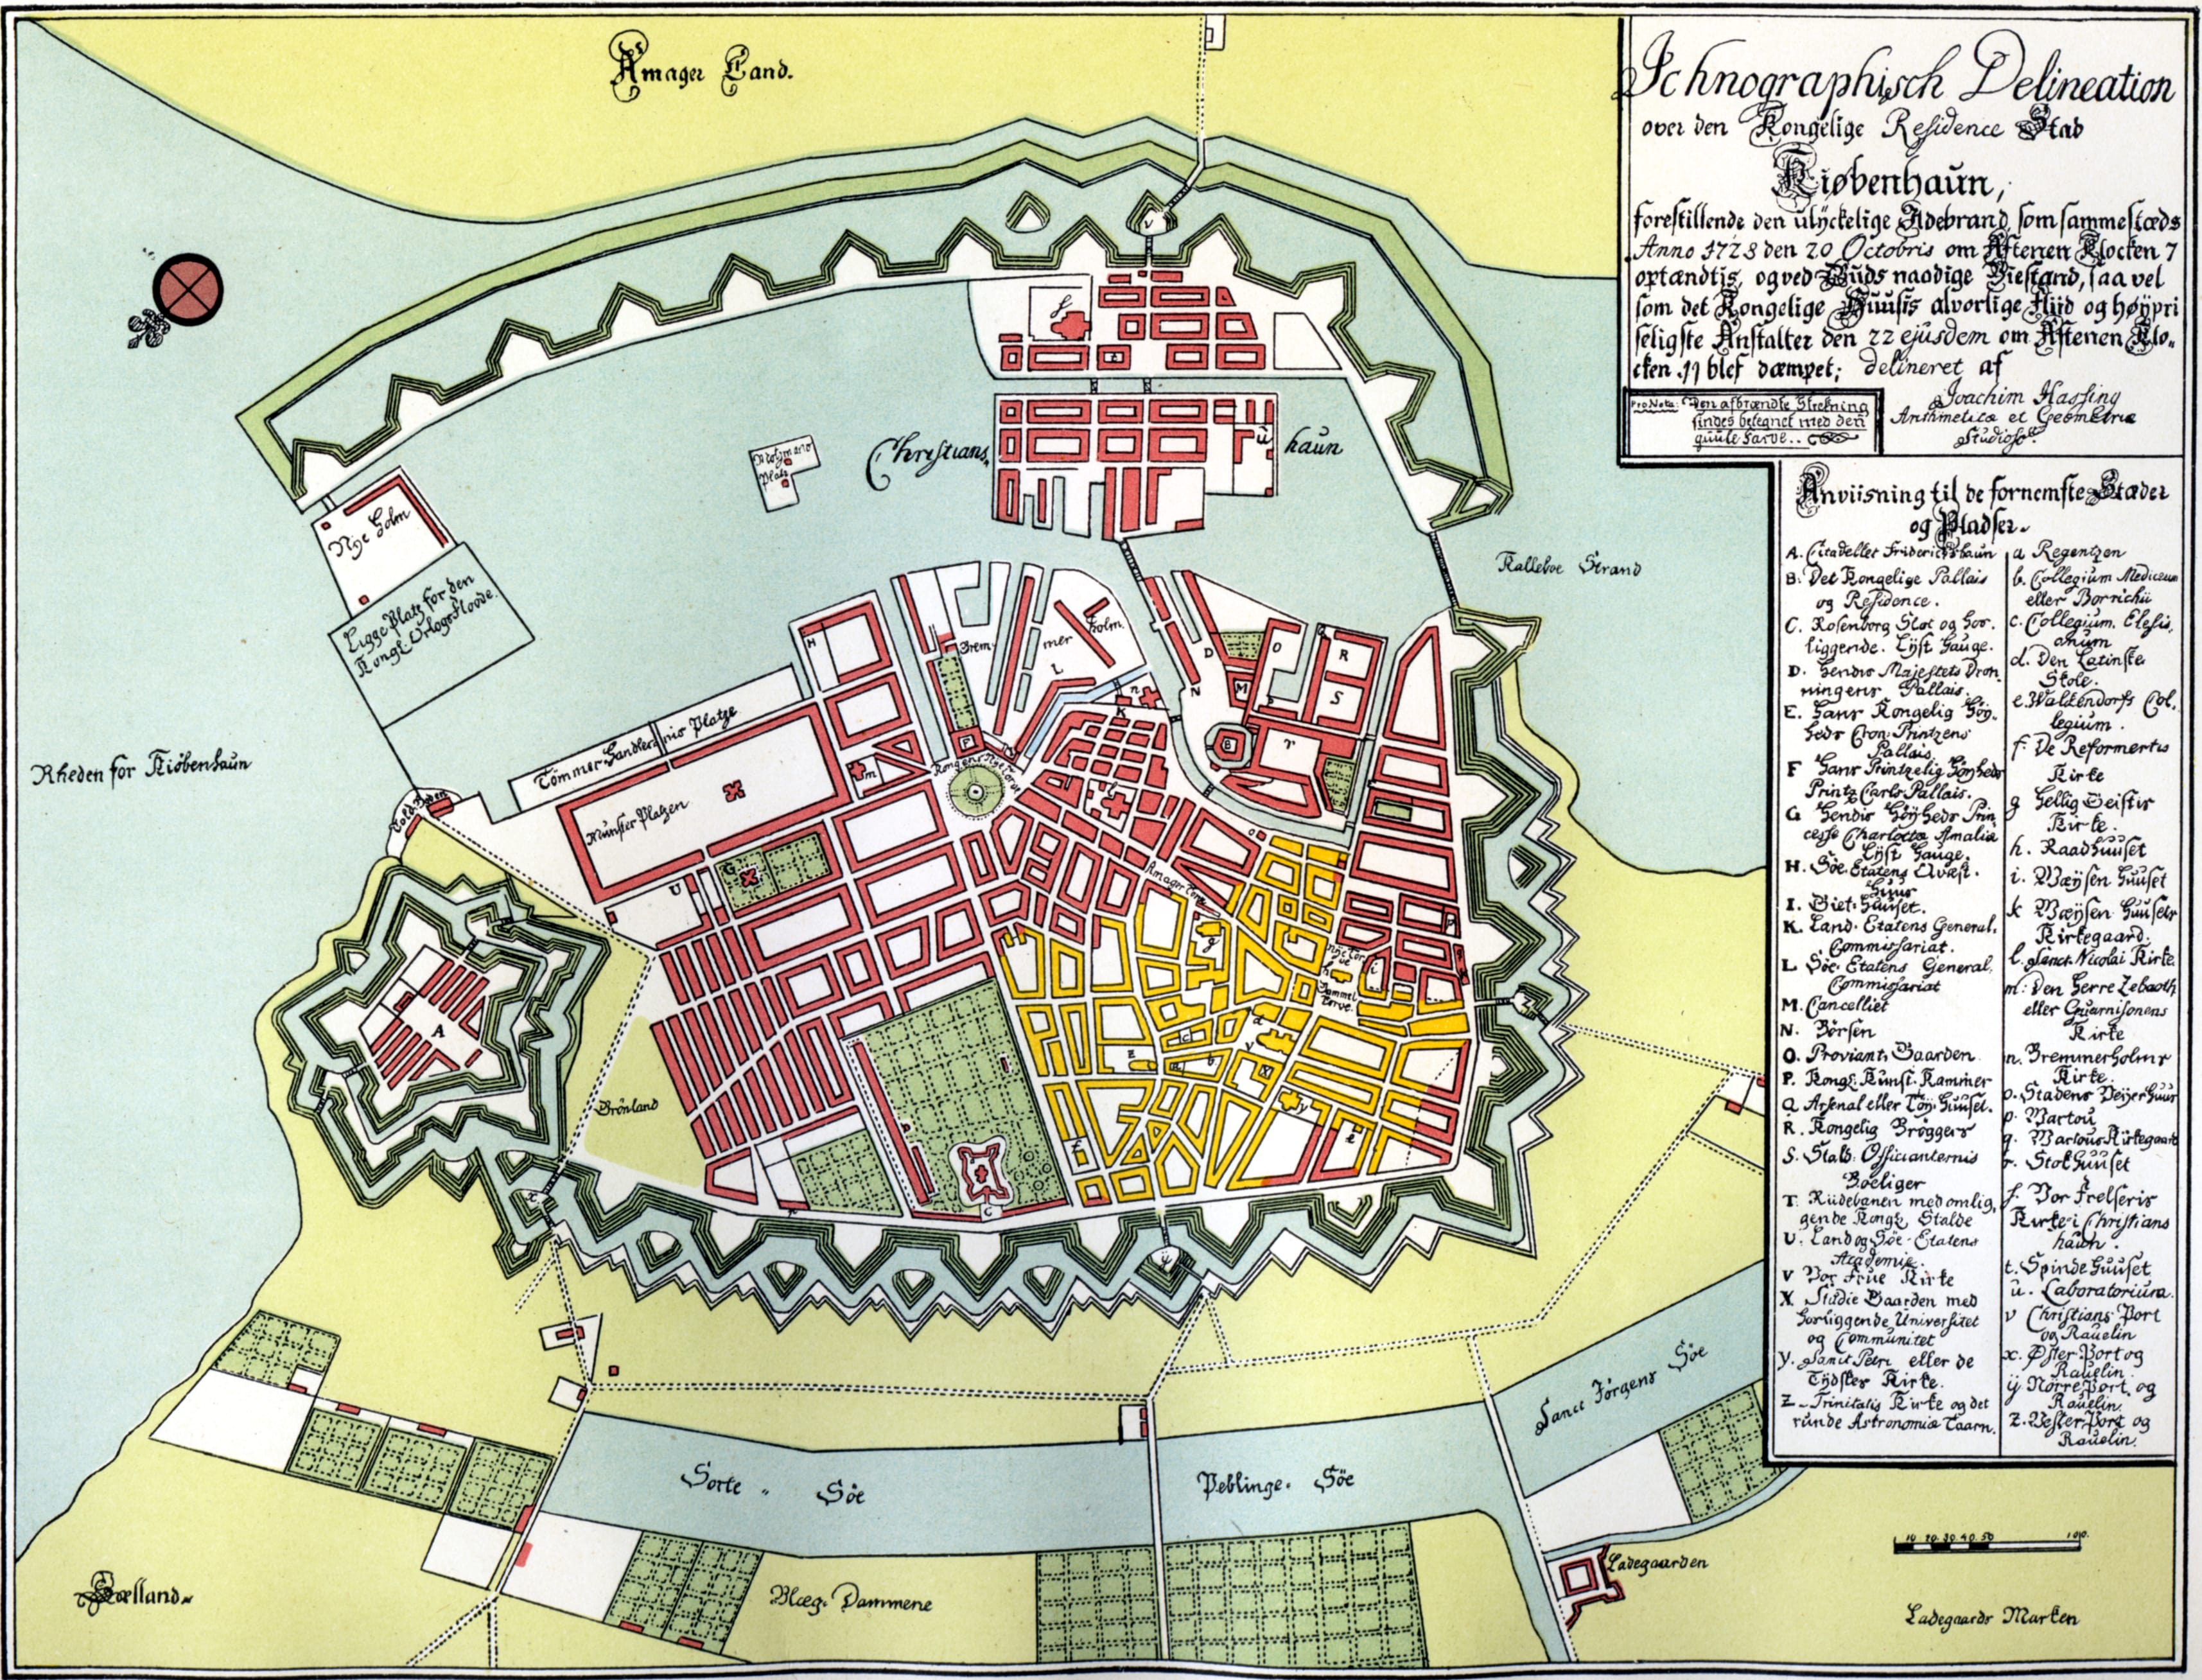 Amager Land.
Ichnographisch Delineation
over den Kongelige Residence Stad
Kiøbenhaun,
forestillende den ulyckelige Ildebrand, som sammestæds
Anno 1728 den 20 Octobris om Aftenen Klocken 7
optændtis, og ved Guds naadige Biestand, saa vel
som det Kongelige Huusis alvorlige Fliid og høypri
seligste Anstalter den 22 ejusdem om Aftenen Klo-
cken 11 blef dæmpet; delineret af
Joachim Hassing
Arithmeticæ et Geometriæ
Studios:
Pro Nota: Den afbrændte Strekning
findes betegnet med den
guule Farve..
Anviisning til de fornemste Stæder
og Pladser.
A. Citadellet Friderichshaun
B. Det Kongelige Pallais
og Residence.
C. Rosenborg Slot og hos-
liggende Lyst Hauge.
D. Hendis Majestets Dron
ningens Pallais.
E. Hans Kongelig Høy-
heds Cron-Printzens
Pallais
F Hans Printzelig Høyheds
Printz Carls Pallais.
G Hendis Høyheds Prin
cesse Charlotta Amaliæ
Lyst Hauge.
H. Søe Etatens Qvæst-
Huus
I. Giet-Huuset.
K. Land-Etatens General-
Commissariat.
L Søe-Etatens General-
Commissariat
M. Cancelliet
N. Børsen
O. Proviant-Gaarden
P. Kongl. Kunst-Kammer
Q Arsenal eller Tøy-Huuset.
R. Kongelig Brøggers
S. Slots-Officianternis
Boeliger
T. Riidebanen med omlig-
gende Kongl. Stalde
U. Land og Søe-Etatens
Academie.
V Vor Frue Kirke
X. Studie Gaarden med
hosliggende Universitet
og Communitet
Y. Sanct Petri eller de
Tydskes Kirke.
Z-Trinitatis Kirke og det
runde Astronomiæ Taarn.
a Regentzen
b. Collegium Mediceum
eller Borrichii
c. Collegium Elersi-
anum
d. Den Latinske
Skole.
e. Walkendorfs Col-
legium.
f. De Reformertis
Kirke
g Hellig Geistis
Kirke.
h. Raadhuuset
i. Wæysen Huuset
k Wæysen Huusets
Kirkegaard.
l. Sanct Nicolai Kirke.
m. Den Herre Zebaoth
eller Guarnisonens
Kirke
n. Bremmerholms
Kirke.
o. Stadens Veyerhuus
p. Vartou
q. Vartous Kirkegaard
r. Stokhuuset
s. Vor Frelseris
Kirke i Christians
haun.
t. Spindehuuset
u. Laboratorium.
v Christians Port
og Ravelin
x. Øster-Port og
Ravelin.
ÿ Nørre Port og
Ravelin.
z. Vester-Port og
Ravelin.
Christians-
haun
Platz
Nye Holm
Ligge Platz for den
Kongl. Orlogs Floode.
Kalleboe Strand
Rheden for Kiøbenhaun
Tömmer-Handlernis Platze
Brem-
mer
holm.
Kongens Nye Torv
Munster Platzen
Told Boden
Amager Torv
Nye Torve
Gammel Torve.
Grönland
Sorte- Söe
Peblinge- Söe
Sanct Jörgens Söe
Blæg-Dammene
Ladegaarden
Ladegaards Marken
Sælland
10 20 30 40 50 100